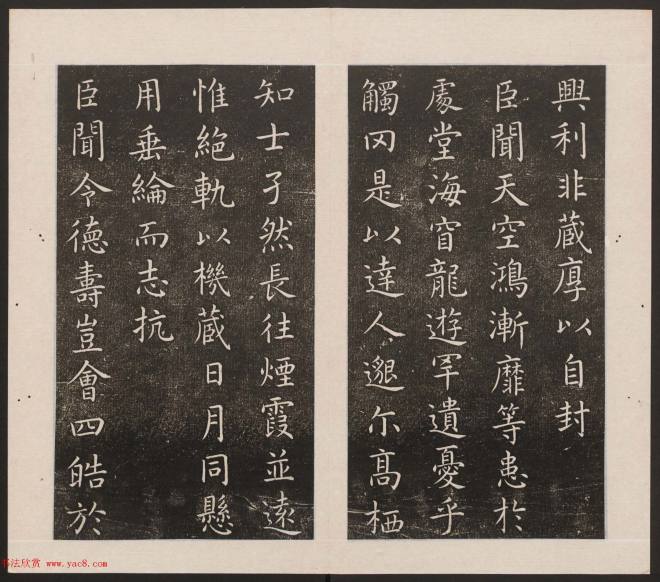 興利非蔵厚以自封
臣聞天空鴻漸靡等患於
處堂海窅龍遊罕遺憂乎
觸罔是以達人邈尓高栖
知士孑然長往煙霞並遠
惟絕軌以機蔵日月同懸
用垂綸而志抗
臣聞令德壽豈會四皓於
书法欣赏 www.yac8.com